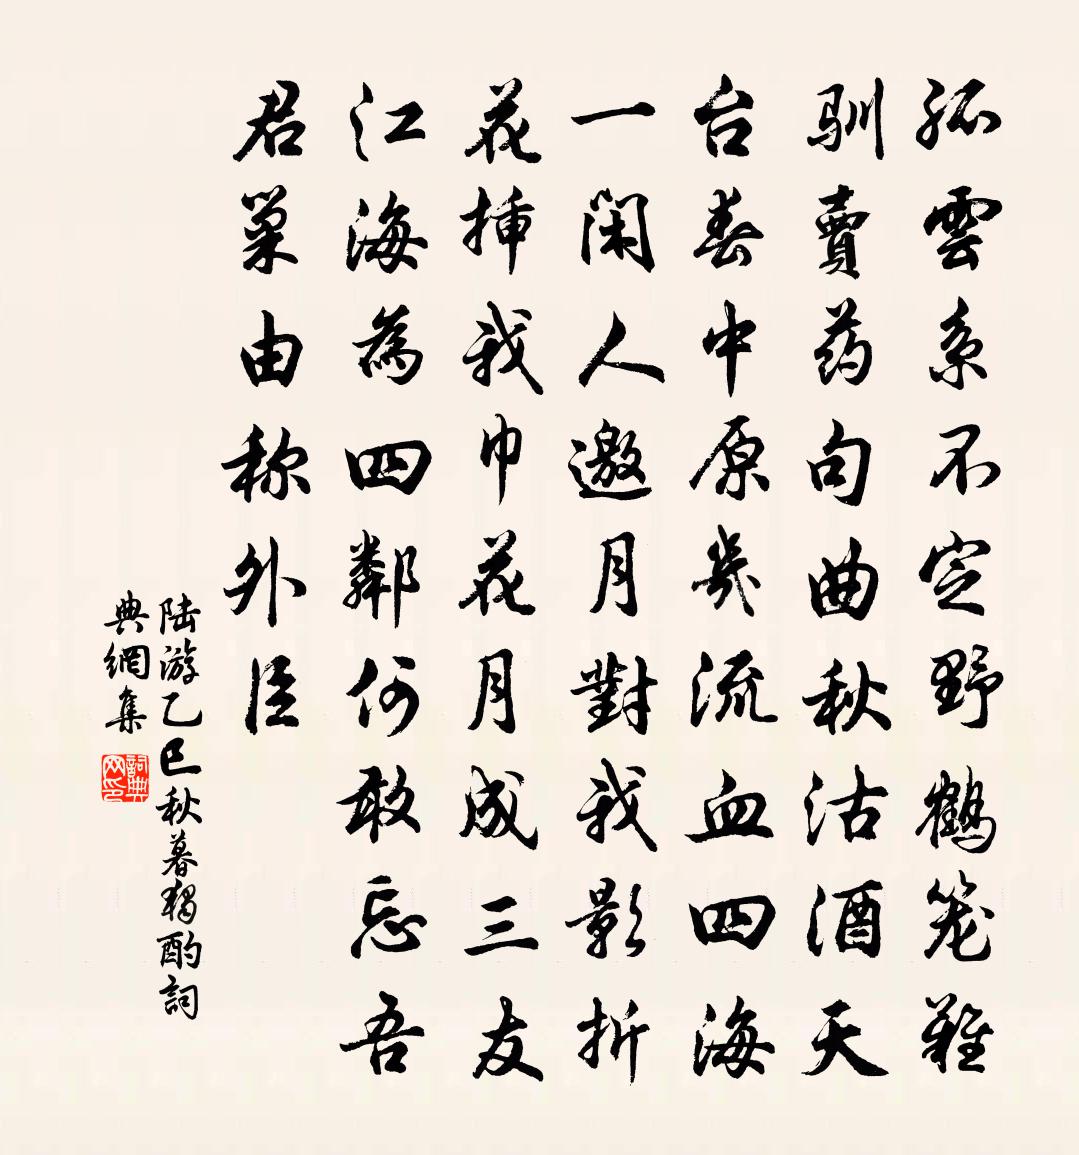 孤雲系不定野鶴笼難
馴賣药句曲秋沽酒天
台春中原幾流血四海
一閑人邀月對我影折
花挿我巾花月成三友
江海為四鄰何敢忘吾
君巢由称外臣
陆游乙巳秋暮獨酌詞
典網集
詞典网印